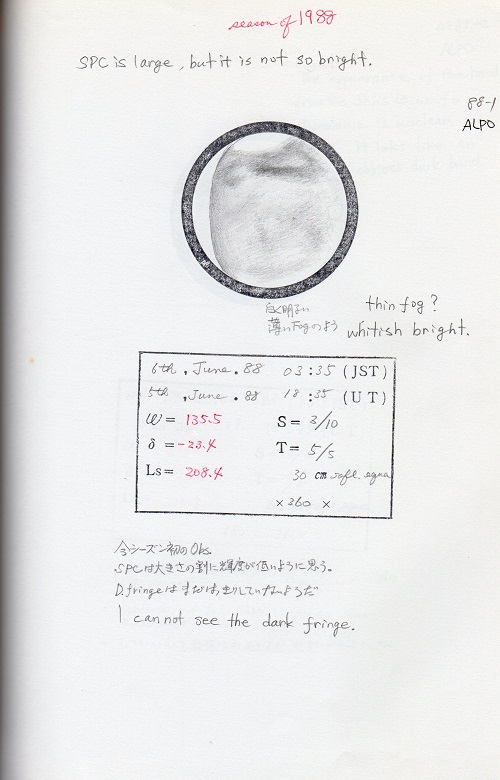 season of 1988
SPC is large, but it is not so bright.
88-1
ALPO
白く明るい
薄いFogのよう
thin fog?
whitish bright.
6th, June. 88 03:35 (JST)
5th, June. 88 18:35 (UT)
ω= 135.5 S= 3/10
δ= -23.4 T= 5/5
Ls= 208.4 30 cm
×360 ×
今シーズン初のObs.
SPCは大きさの割に輝度が低いように思う。
D.fringeはまだはっきりしていないようだ
I cannot see the dark fringe.